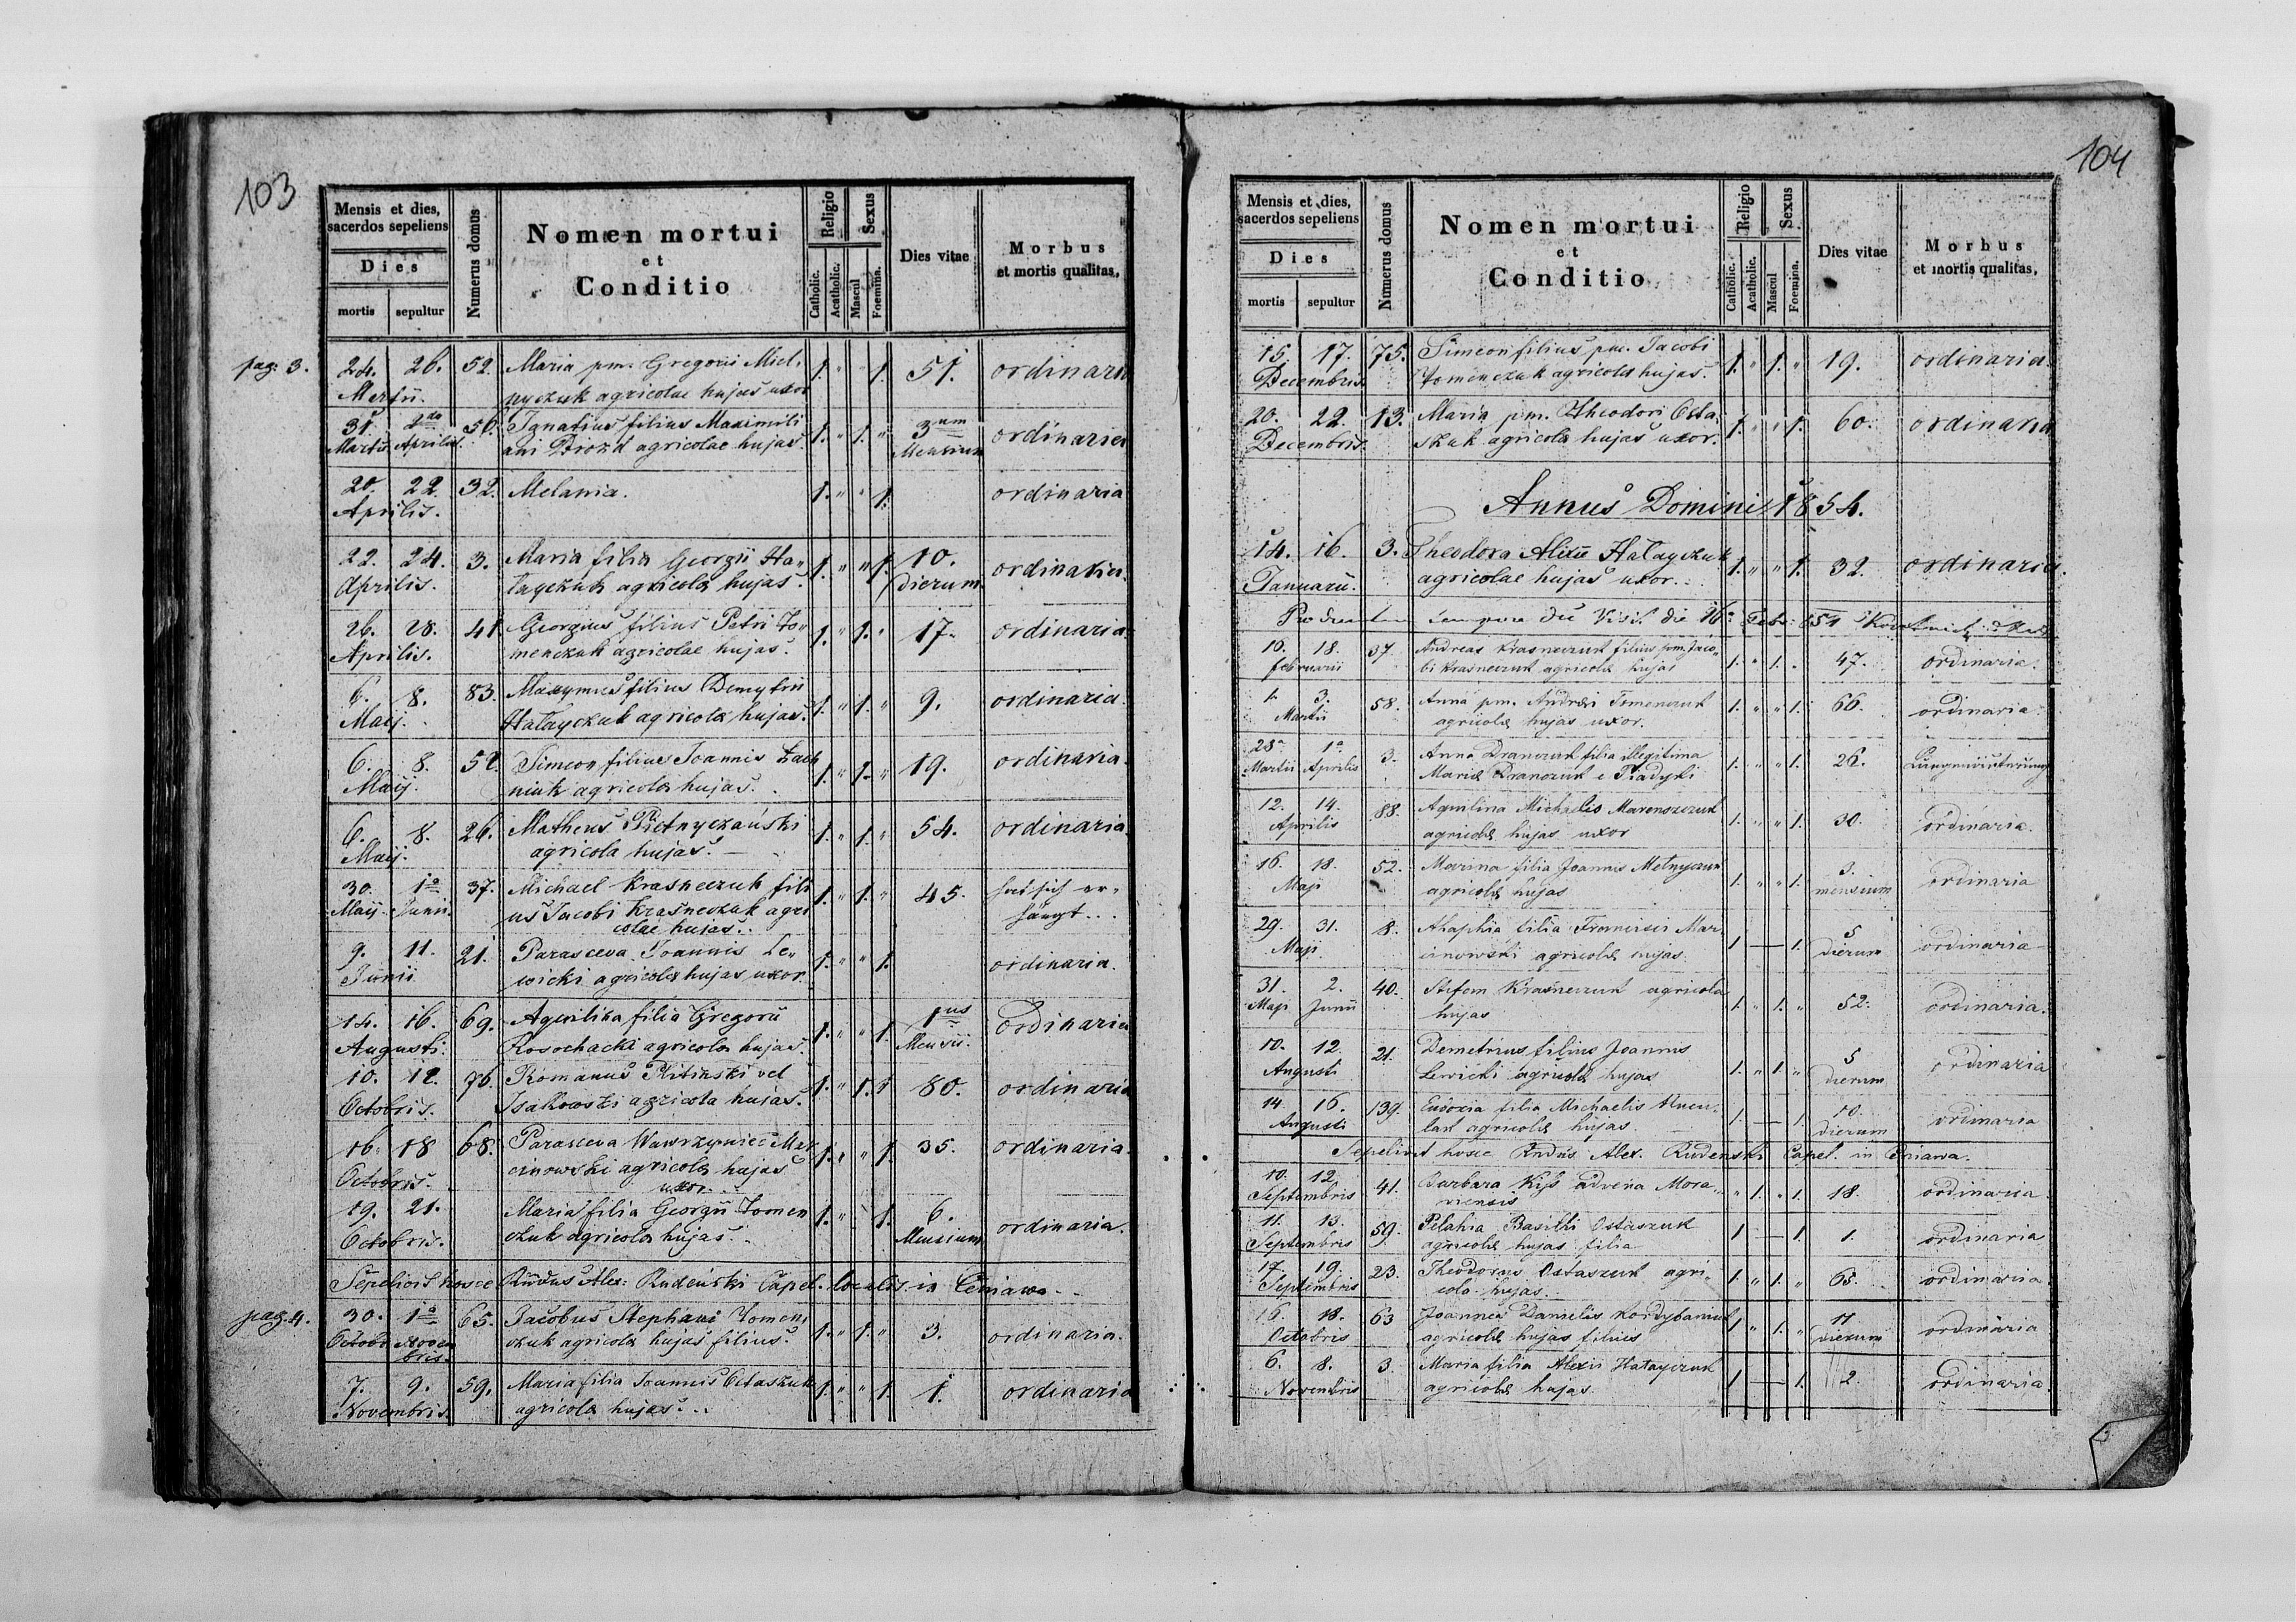 103
Mensis et dies,
sacerdos sepeliens
Dies
mortis sepultur
Numerus domus
Nomen mortui
et
Conditio
Religio
Catholic. Acatholic.
Sexus
Mascul Foemina.
Dies vitae
Morbus
et mortis qualitas,
pag: 3. 24. 26. 52. Maria pm. Gregorii Miel, 1. " " 1. 51. ordinaria
Martii. nyczuk agricolae hujas uxor
31. 1da 56. Ignatius filius Maximili 1. " 1. " 3um ordinaria
Martii Aprilis. ani Drozd agricolae hujas. Mensium
20. 22. 32. Melania. 1. " " 1. ordinaria
Aprilis.
22. 24. 3. Maria filia Georgii Ha, 1. " " 1. 10. ordinaria.
Aprilis. layczuk agricola hujas. dierum
26. 28. 41. Georgius filius Petri To, 1. " 1. " 17. ordinaria
Aprilis. menczuk agricolae hujas.
6. 8. 83. Maxymus filius Demytrii 1. " 1. " 9. ordinaria.
Maij. Hałayczuk agricola hujas.
6. 8. 52. Simeon filius Joannis 1. " 1. " 19. ordinaria.
Maij. niuk agricola hujas.
6. 8. 26. Matheus 1. " 1. " 54. ordinaria
Maij. agricola hujas.
30. 1a 37. Michael Krasneczuk fili 1. " 1. " 45. hat sich er,
Maij. Junii. us Jacobi Krasneczuk agri hängt..
colae hujas..
9. 11. 21. Parasceva Joannis Le, 1. " " 1. ordinaria.
Junii wicki agricola hujas uxor.
14. 16. 69. Aquilina filia Gregorii 1. " " 1. 1us ordinaria
Augusti. Rosochacki agricola hujas. Mensis.
10. 12. 76. Romanus vel 1. " 1. 80. ordinaria
Octobris. Isakowski agricola hujas.
16. 18 68. Parasceva Wawrzyniec Mar 1. " " 1. 35. ordinaria.
Octobris. cinowski agricola hujas
uxor..
19. 21. Maria filia Georgii Tomen 1. " " 1. 6. ordinaria.
Octobris. czuk agricola hujas. Mensium
Sepelivit hosce Rndus Alex: Rudeński Capel. localis in Ceniawa..
pag. 4. 30. 1a 65. Jacobus Stephani Tomen 1. " 1. " 3. ordinaria.
Octobr Novem czuk agricola hujas filius.
bris.
7. 9. 59. Maria filia Joannis Ostaszuk 1. " " 1. 1. ordinaria
Novembris. agricola hujas...
104
Mensis et dies,
sacerdos sepeliens
Dies
mortis sepultur
Numerus domus
Nomen mortui
et
Conditio
Religio
Catholic. Acatholic.
Sexus
Mascul Foemina.
Dies vitae
Morbus
et mortis qualitas,
15. 17. 75. Simeon filius pm. Jacobi 1. " 1. " 19. ordinaria.
Decembris. Tomenczuk agricola hujas.
20. 22. 13. Maria pm. Theodori Osta, 1. " " 1. 60. ordinaria
Decembris. szuk agricola hujas uxor.
Annus Domini 1854.
14. 16. 3. Theodora Alexii Hałayczuk 1. " " 1. 32. ordinaria
Januarii. agricolae hujas uxor..
die 16. Febr.
16. 18. 37 Andreas Krasneczuk filius pm. Jaco, 1. " 1. . 47. ordinaria.
februarii bi Krasneczuk agricola hujas
1. 3. 58. Anna pm. Andrei Tomenczuk 1. " " 1. 66. ordinaria.
Martii agricola hujas uxor.
28a 1a 3. Anna Dranczuk filia illegitima 1. " " 1. 26.
Martii Aprilis Maria Dranczuk e Piadyki
12. 14. 88. Aquilina Michaelis 1. " " 1. 30. ordinaria.
Aprilis agricola hujas uxor
16. 18. 52. Marina filia Joannis Melnyczuk 1. " " 1. 3. ordinaria
Maji agricola hujas mensium
29. 31. 8. Ahaphia filia Francisci Mar 1 — 1. 5 ordinaria
Maji. cinowski agricola hujas. dierum
31. 2. 40. Stefan Krasneczuk agricola 1. " 1. " 52. ordinaria.
Maji Junii hujas
10. 12. 21. Demetrius filius Joannis 1. " 1. " 5 ordinaria
Augusti Lewicki agricola hujas dierum
14. 16. 139. Eudoxia filia Michaelis 1. — 1. 10. ordinaria
Augusti agricola hujas. dierum
Sepelivit hosce Rndus Alex. Rudenski Capel. in Ceniawa.
10. 12. 41. Barbara advena Mora, " 1. " 1. 18. ordinaria.
Septembris viensis
11. 13. 59. Pelahia Basilii Ostaszuk 1 — 1. 1. ordinaria
Septembris agricola hujas filia
17. 19. 23. Theodorus Ostaszuk agri, 1. " 1. " 63. ordinaria
Septembris cola hujas.
16. 18. 63 Joannes Danielis Kordybaniuk 1 " 1. " 11 ordinaria
Octobris agricola hujas filius dierum
6. 8. 3. Maria filia Alexii Hałayczuk 1 — 1. 2. ordinaria.
Novembris agricola hujas.